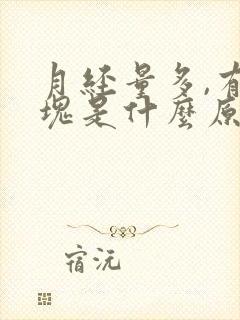 月经量多,有
块是什麼原
宿沅